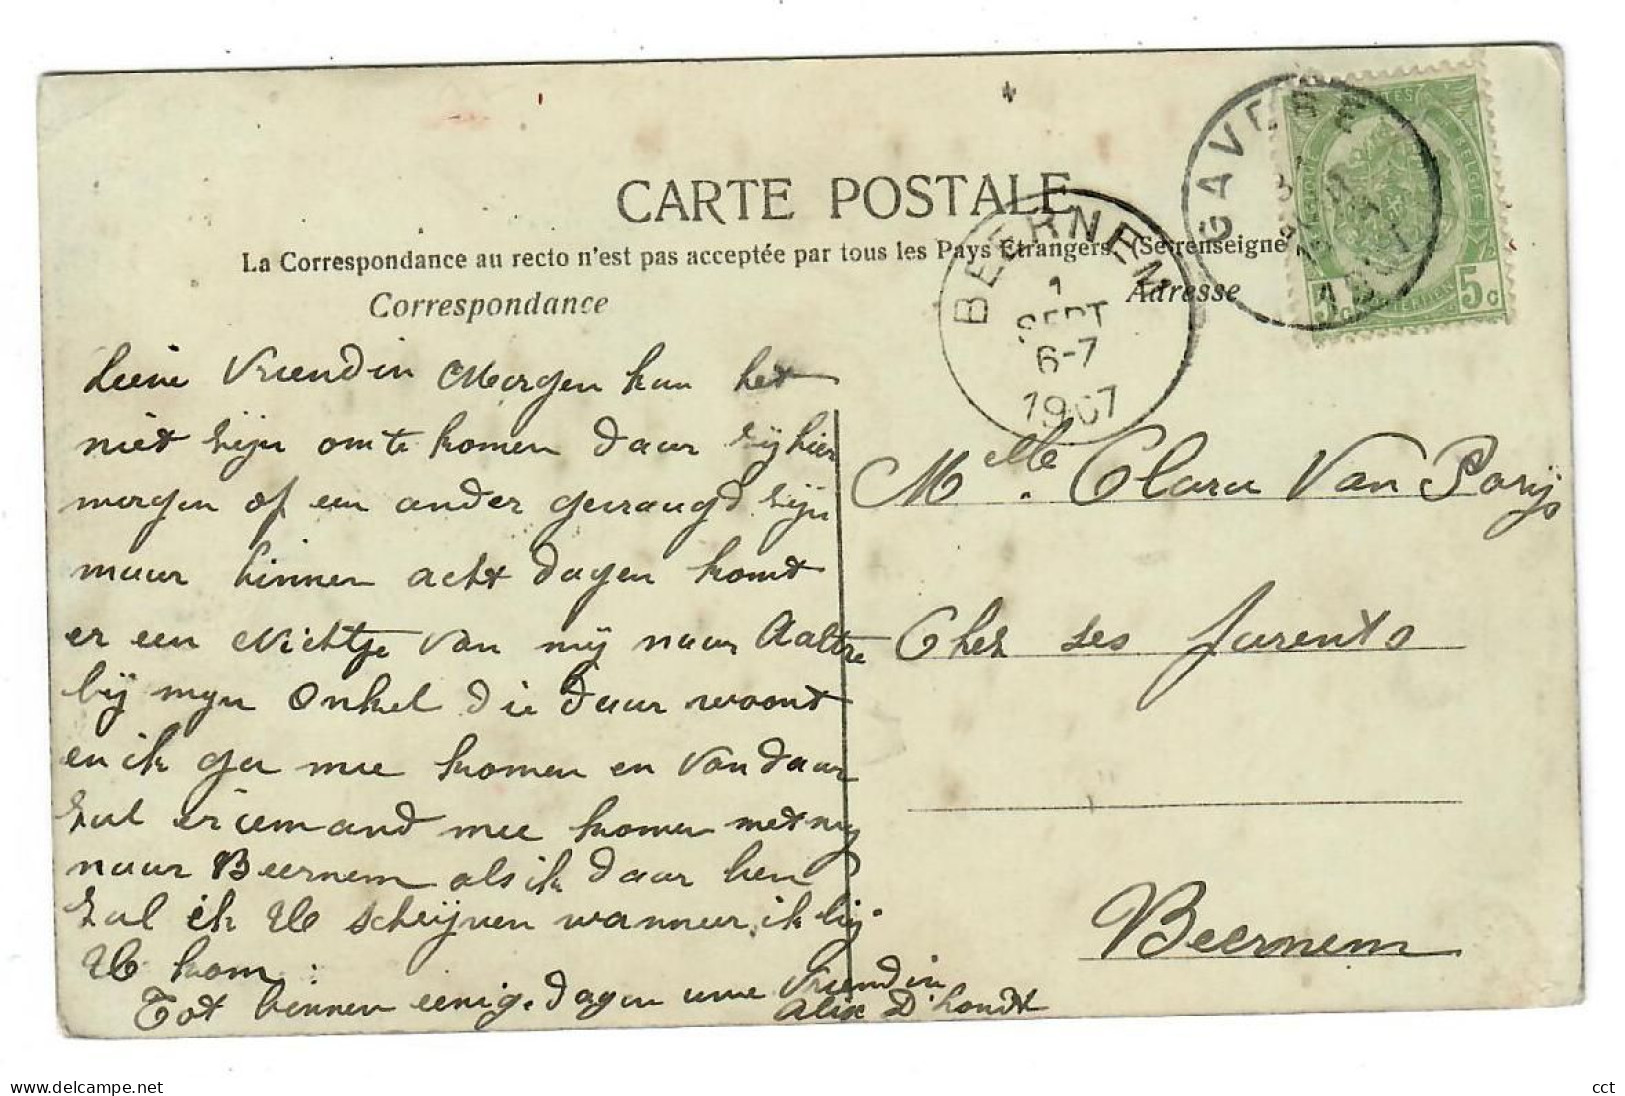 GAVERE
CARTE POSTALE
La Correspondance au recto n'est pas acceptée par tous les Pays Étrangers. (Se renseigne
Correspondance
Adresse
BEERNEM
1
SEPT
6-7
1907
5c 5c
Lieve Vriendin Morgen kan het
niet zijn om te komen daar zij hier
morgen of een ander gevraagd zijn
maar binnen acht dagen komt
er een Nichtje van mij naar Aaltre
bij mijn Onkel die daar woont
en ik ga mee komen en van daar
zal er iemand mee komen met mij
naar Beernem als ik daar ben
zal ik U schrijven wanneer ik bij
U kom :
Tot binnen eenig. dagen uwe Vriendin
Alix D'hondt
Melle. Clara Van Parijs
Chez ses parents
Beernem
cct